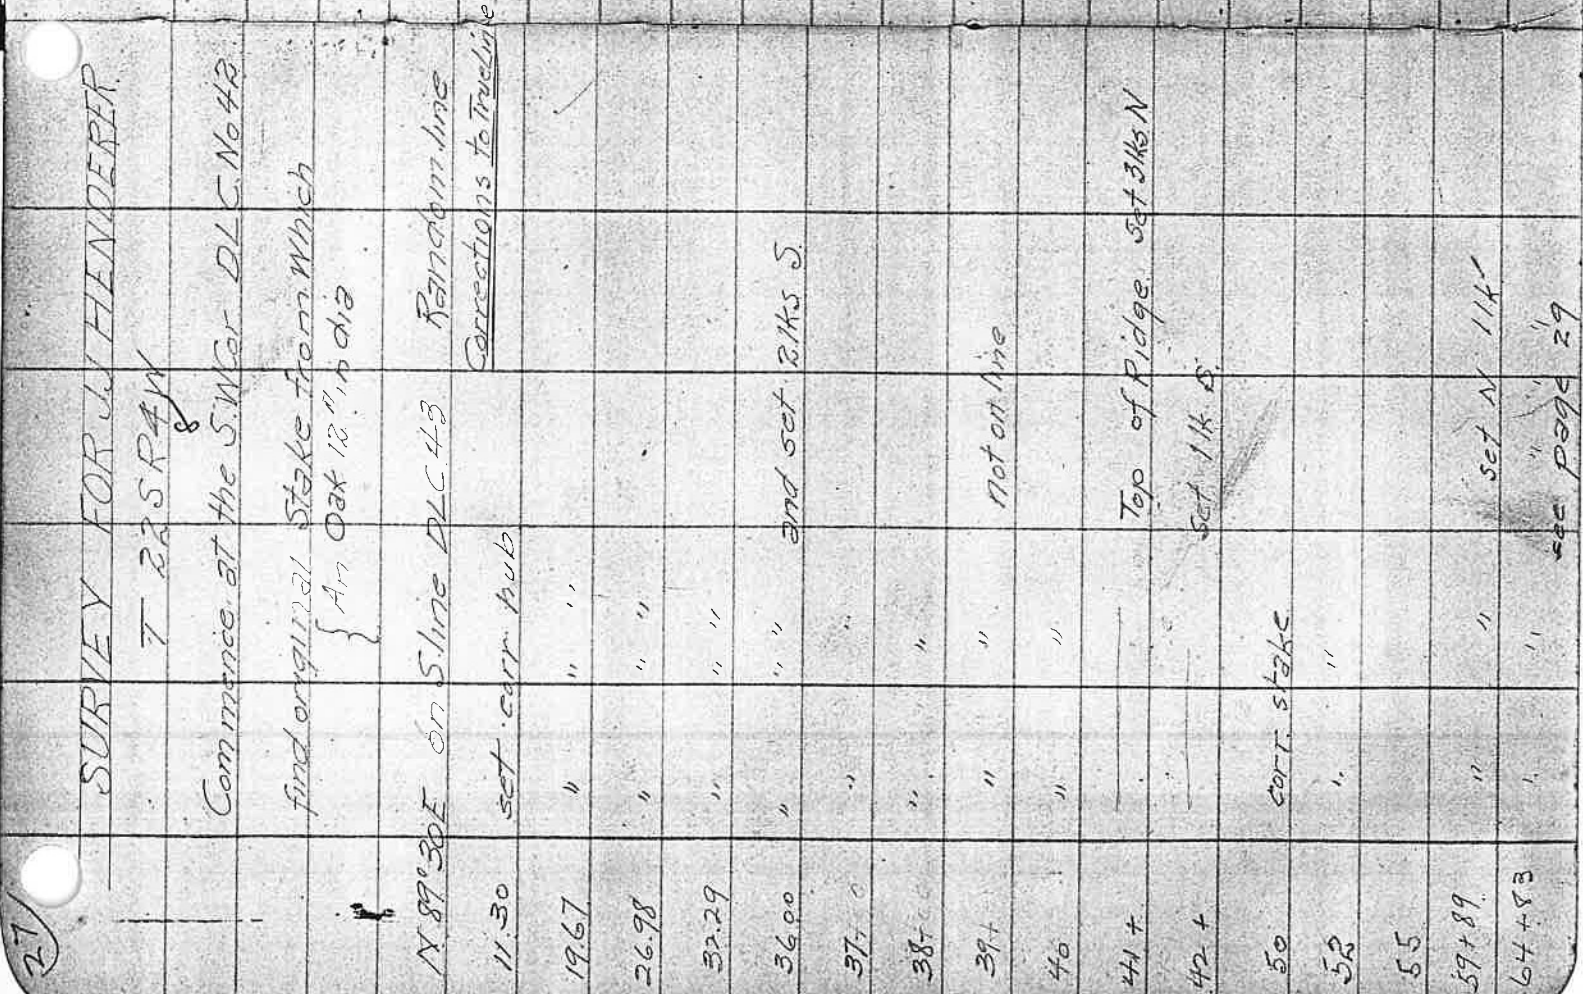 27
SURVEY FOR JJ HENDERER
T 22 S R 4 W
8
Commence at the S.W Cor DLC No 42
find original Stake from Which
{ An Oak 12" in dia
N 89° 30 E on S line DLC 43 Random line
Corrections to True Line
11.30 set corr hub
19.67 " " "
26.98 " " "
32.29 " " "
36.00 " " " and set 2 lks S.
37+ " "
38+ " "
39+ " " not on line
40 " "
41 + Top of Ridge. Set 3 lks N
42 + Set 1 lk S.
50 corr. stake
52 " "
55
59+89 " " set N 1 lk
64+83 " " " "
see page 29